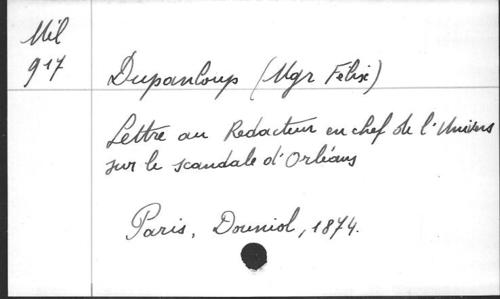 Mil
917
Dupanloup (Mgr Félix)
Lettre au Rédacteur en chef de l'Univers
sur le scandale d'Orléans
Paris, Douniol, 1874.